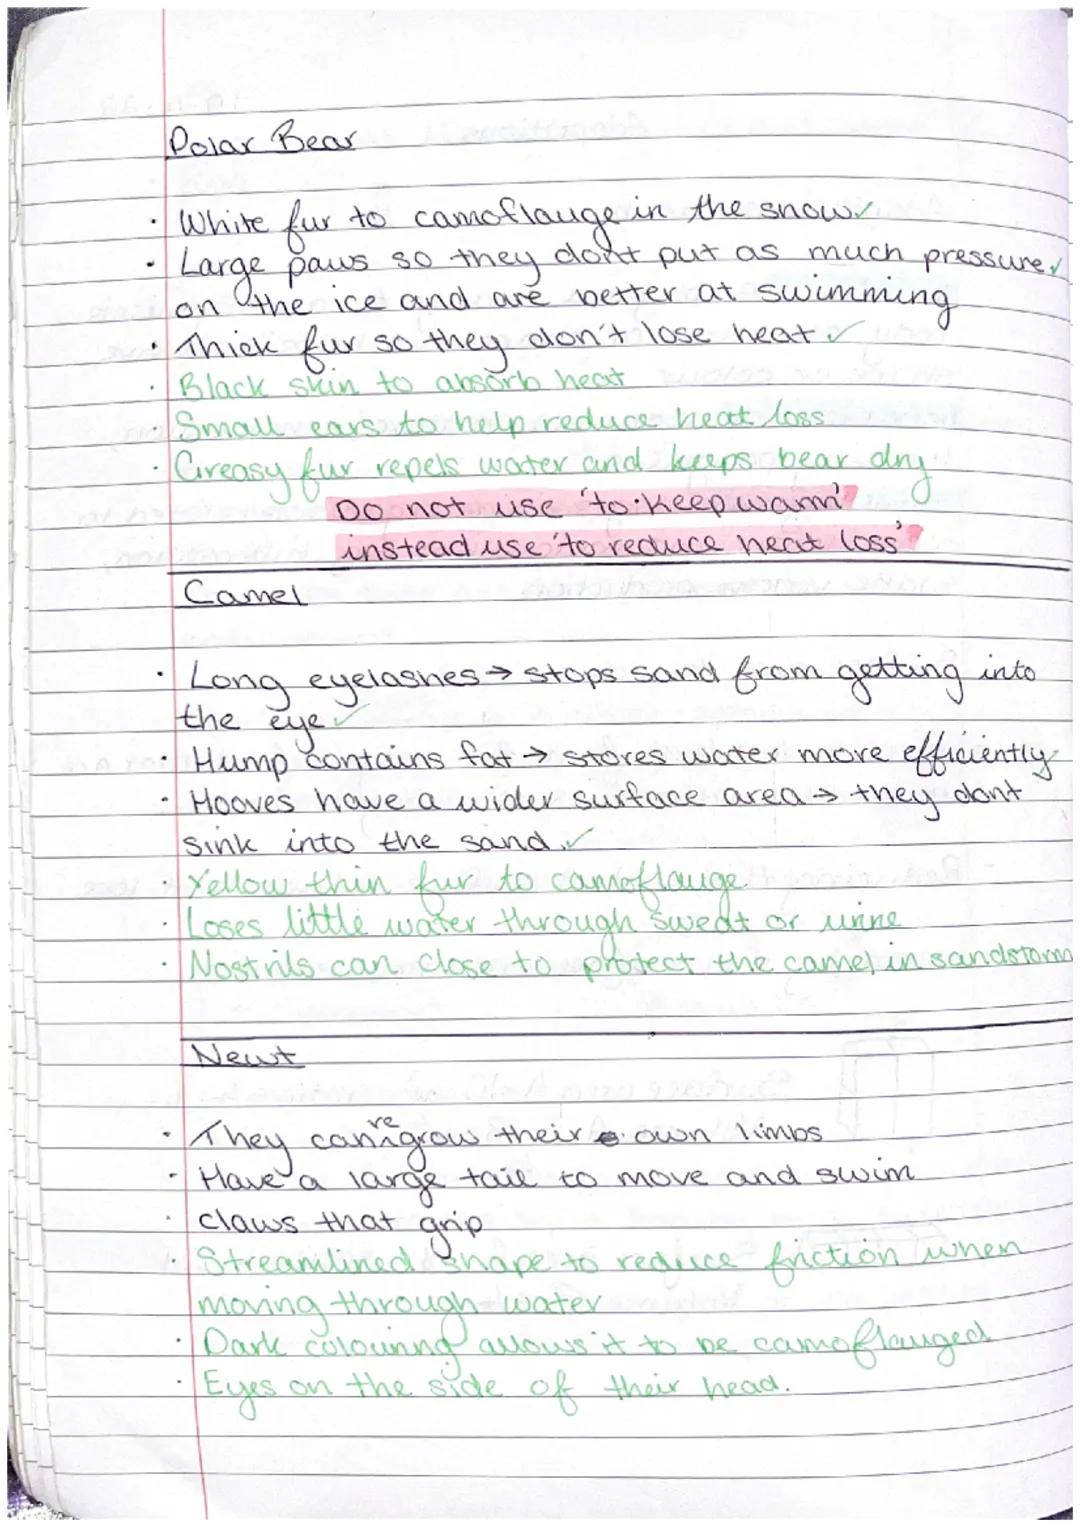 Polar Bear
· White fur to camoflauge in the snow✓
· Large paws so they don't put as much pressure✓
on the ice and are better at swimming
· Thick fur so they don't lose heat ✓
· Black skin to absorb heat
· Small ears to help reduce heat loss
· Greasy fur repels water and keeps bear dry
Do not use 'to keep warm'
instead use 'to reduce heat loss'
Camel
· Long eyelashes → stops sand from getting into
the eye ✓
· Hump contains fat → stores water more efficiently
· Hooves have a wider surface area → they dont
sink into the sand. ✓
· Yellow thin fur to camoflauge
· Loses little water through sweat or urine
· Nostrils can close to protect the camel in sandstorm
Newt
· They can regrow their own limbs
· Have a large tail to move and swim
· claws that grip
· Streamlined shape to reduce friction when
moving through water
· Dark colouring allows it to be camoflauged
· Eyes on the side of their head.